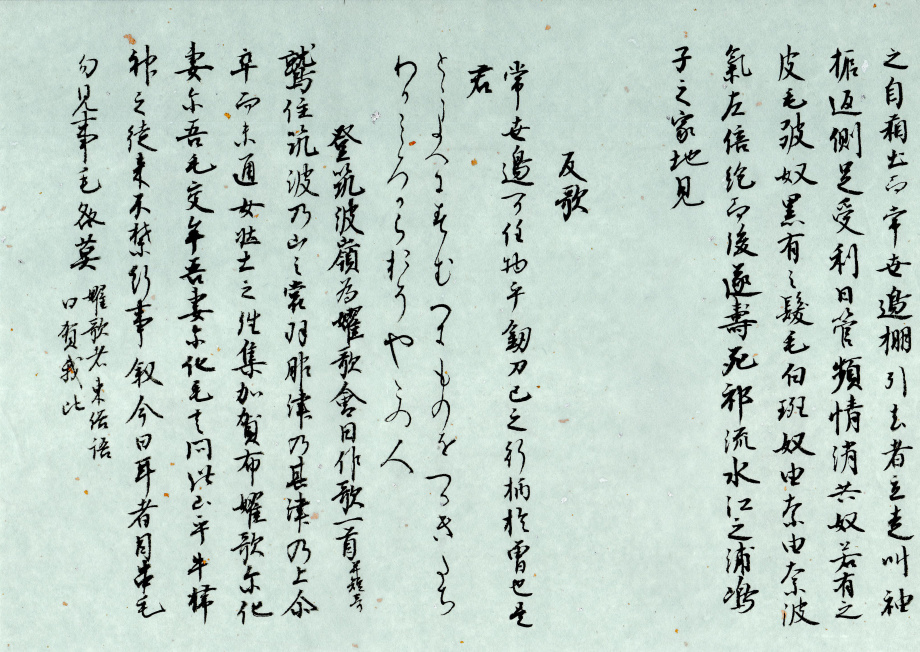 之自箱出而常世邊棚引去者立走叫袖
振返側足受利日管頻情消失奴若有之
皮毛皺奴黒有之髮毛白斑奴由奈由奈波
氣左倍絶而後遂壽死祁流水江之浦嶋
子之家地見
反歌
常世邊可住物乎劔刀己之行柄於曽也是
君
とこよへにすむへきものをつるきたち
わかこゝろからおそやこの人
登筑波嶺為嬥歌會日作歌一首并短哥
鷲住筑波乃山之裳羽服津乃其津乃上尓
率而未通女壮士之徃集加賀布嬥歌尓化
妻尓吾毛交牟吾妻尓化毛言問此山乎牛掃
神之従来不禁行事叙今日耳者目串毛
勿見事毛咎莫
嬥歌者東俗語
曰賀我比